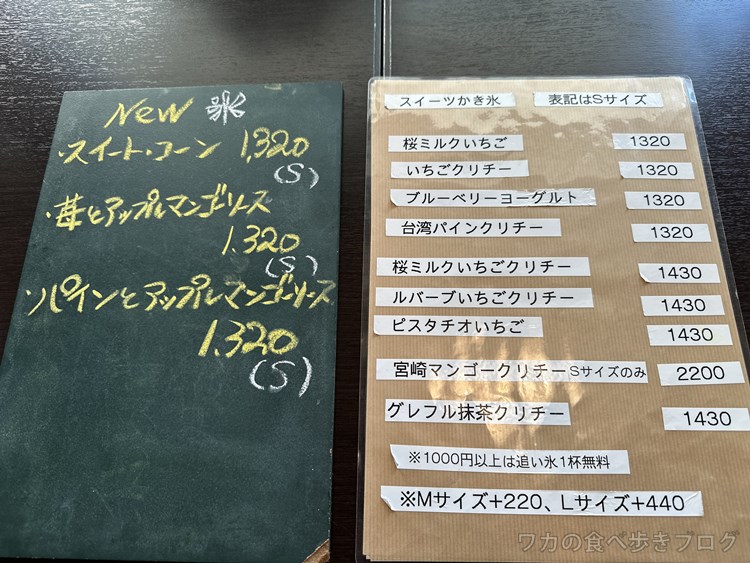 New 氷
・スイート・コーン 1,320
(S)
・苺とアップルマンゴーソース
1.320
(S)
・パインとアップルマンゴーソース
1.320
(S)
スイーツかき氷 表記はSサイズ
桜ミルクいちご 1320
いちごクリチー 1320
ブルーベリーヨーグルト 1320
台湾パインクリチー 1320
桜ミルクいちごクリチー 1430
ルバーブいちごクリチー 1430
ピスタチオいちご 1430
宮崎マンゴークリチーSサイズのみ 2200
グレフル抹茶クリチー 1430
※1000円以上は追い氷1杯無料
※Mサイズ+220、Lサイズ+440
ワカの食べ歩きブログ